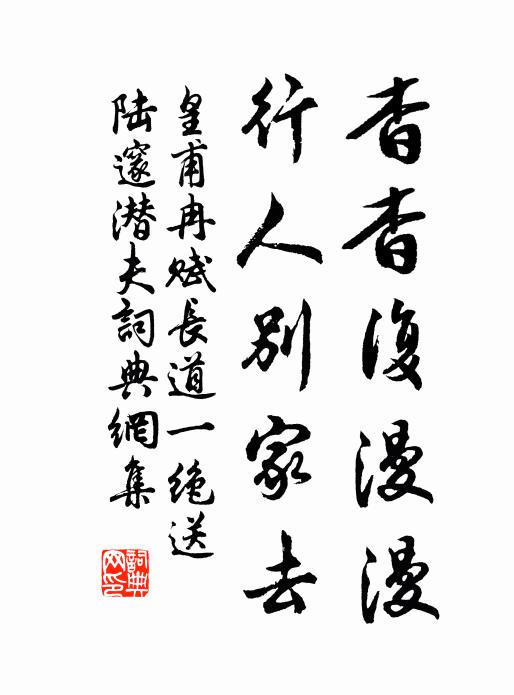 杳杳復漫漫
行人別家去
皇甫冉賦長道一絶送
陸邃潜夫詞典網集
詞典网印